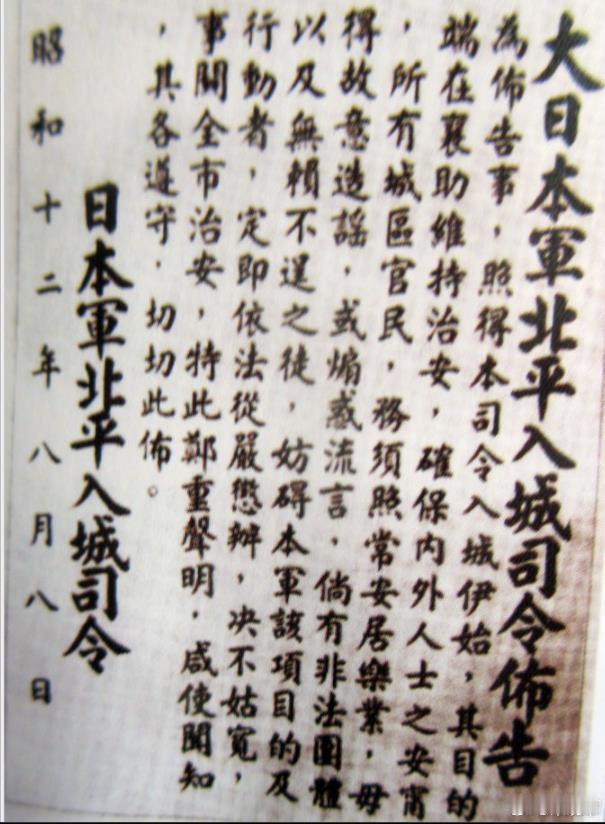 大日本軍北平入城司令佈告
為佈告事，照得本司令入城伊始，其目的
端在襄助維持治安，確保內外人士之安甯
，所有城區官民，務須照常安居樂業，毋
得故意造謠，或煽惑流言，倘有非法團體
以及無賴不逞之徒，妨碍本軍該項目的及
行動者，定即依法從嚴懲辦，决不姑寬，
事關全市治安，特此鄭重聲明，咸使聞知
，其各遵守，切切此佈。
日本軍北平入城司令
昭和十二年八月八日